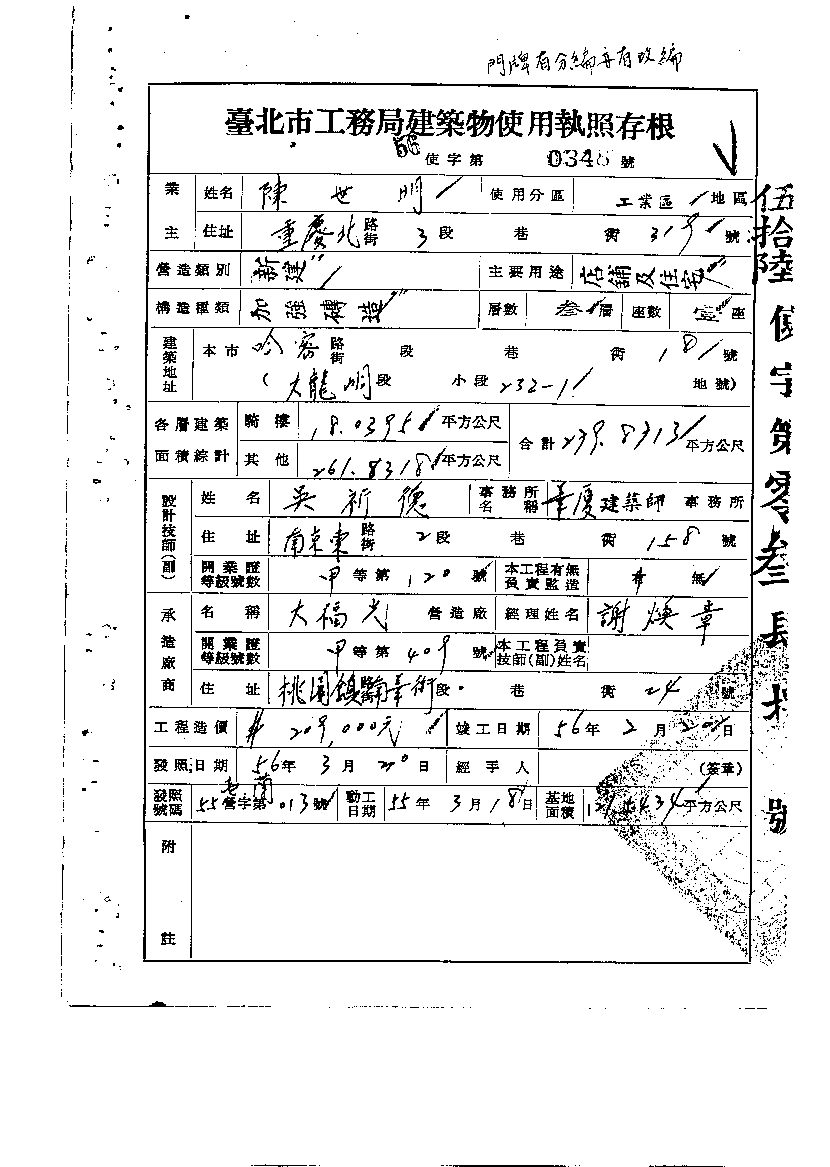 門牌有分編亦有改編
臺北市工務局建築物使用執照存根
56 使字第 0348 號
業主 姓名 陳世明 使用分區 工業區 地區
住址 重慶北 路街 3 段 巷 衖 319 號
營造類別 新建 主要用途 店舖及住宅
構造種類 加強磚造 層數 叁層 座數 座
建築地址 本市 哈密 路街 段 巷 衖 181 號
(大龍峒 段 小段 232-1 地號)
各層建築面積綜計 騎樓 18.0395 平方公尺 合計 239.8313 平方公尺
其他 261.8318 平方公尺
設計技師(副) 姓名 吳祈德 事務所名稱 華廈建築師 事務所
住址 南京東 路街 2 段 巷 衖 158 號
開業證等級號數 甲 等第 120 號 本工程有無負責監造 有 無
承造廠商 名稱 大福光 營造廠 經理姓名 謝煥章
開業證等級號數 甲 等第 409 號 本工程負責技師(副)姓名
住址 桃園鎮 段 巷 衖 24 號
工程造價 209,000元 竣工日期 56年 2月 20日
發照日期 56年 3月 20日 經手人 (簽章)
發照號碼 55 營字第 013 號 動工日期 55年 3月 18日 基地面積 平方公尺
附註
伍拾陸使字第零叁 號